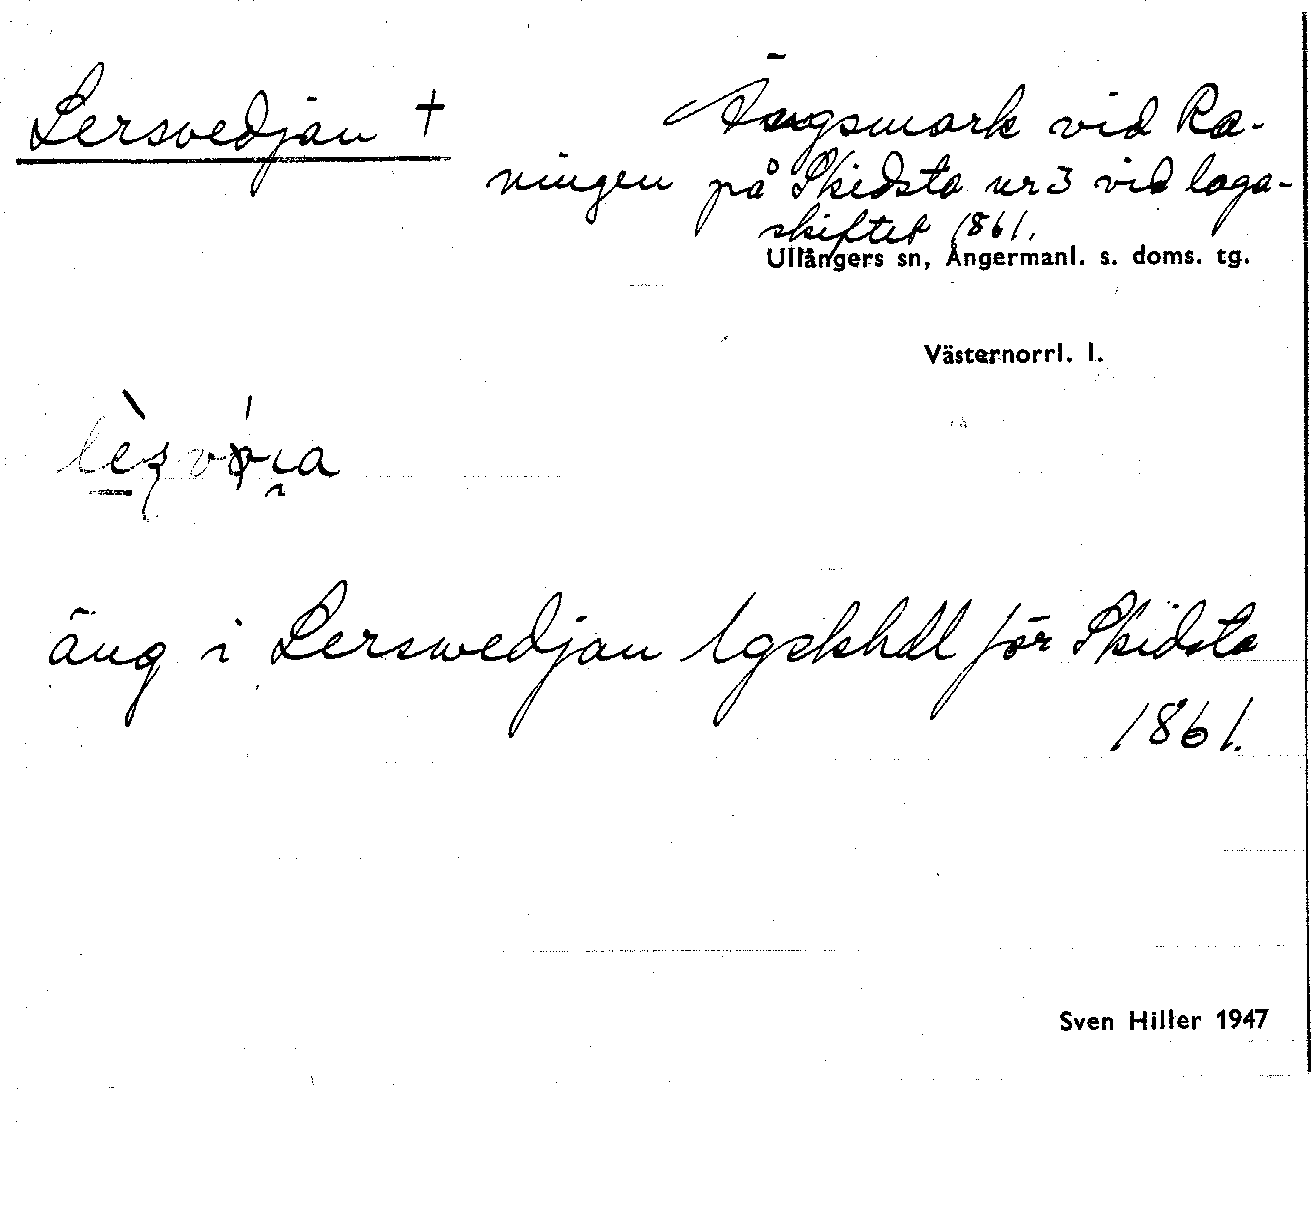 Lersvedjan †
Ängsmark vid Ra-
ningen på Skidsta nr 3 vid laga-
skiftet 1861.
Ullångers sn, Ångermanl. s. doms. tg.
Västernorrl. l.
äng i Lerswedjan lgskhdl för Skidsta
1861.
Sven Hiller 1947